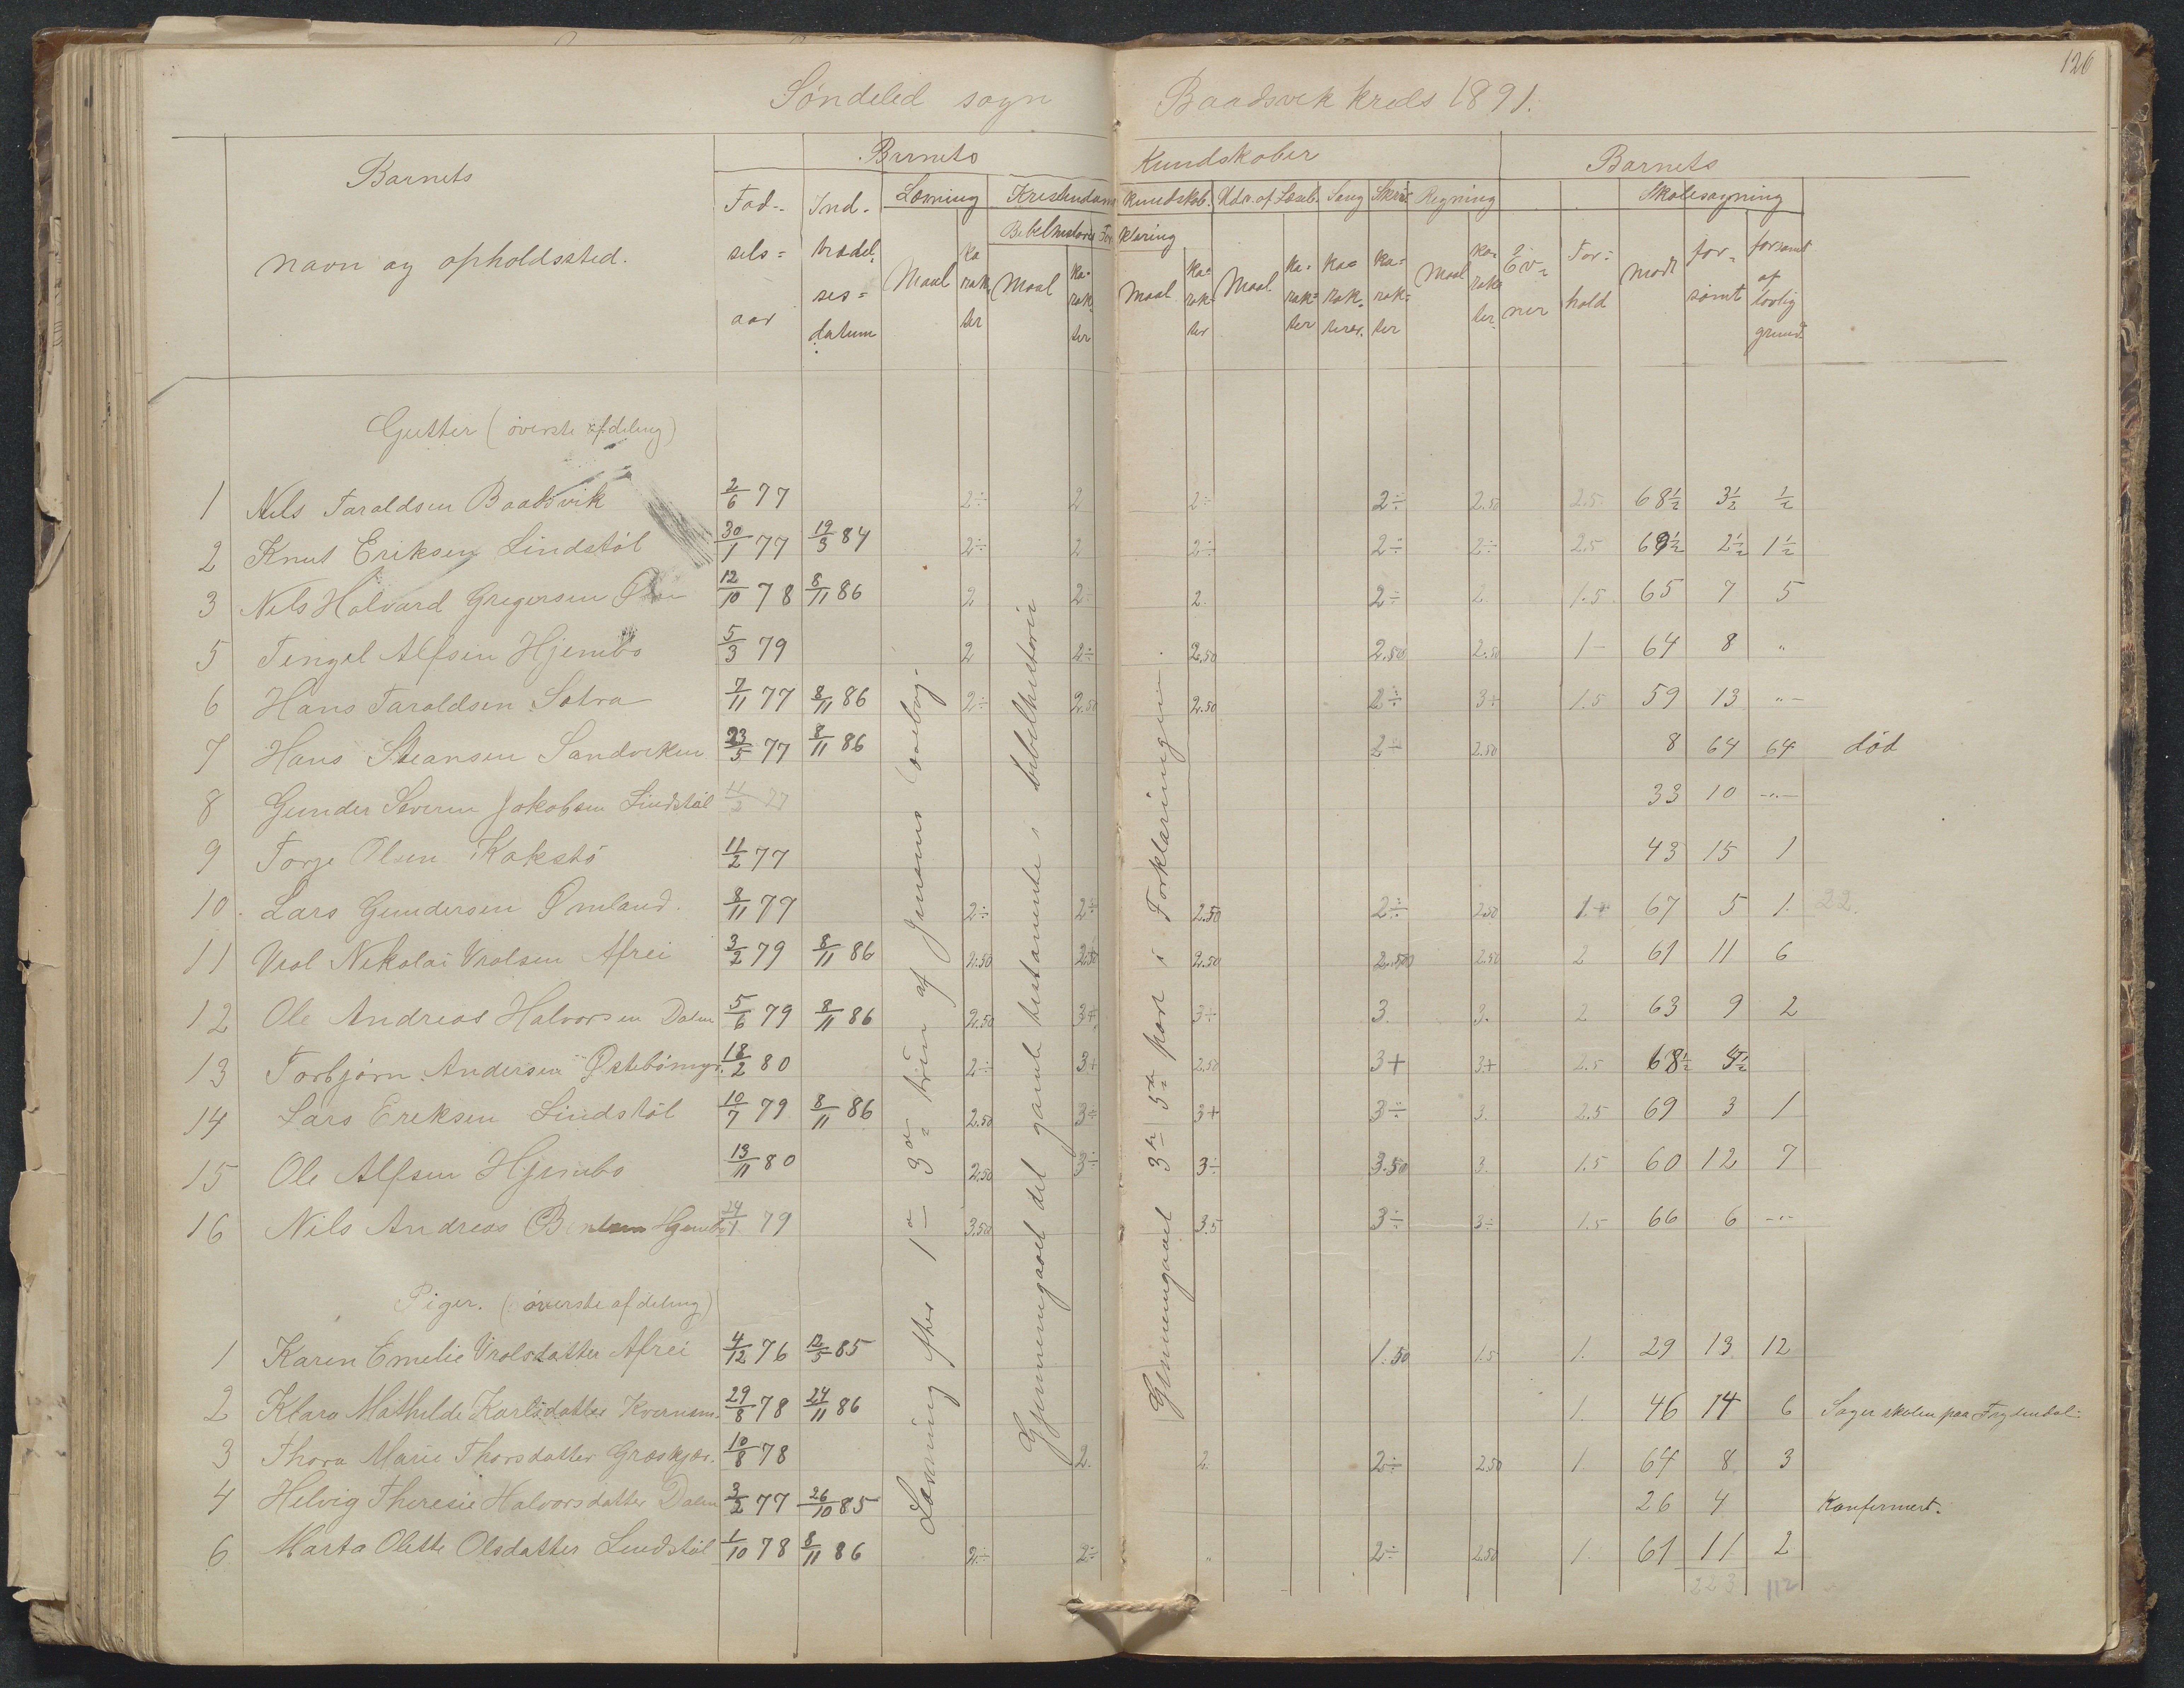 126
Søndeled sogn Baadsvik kreds 1891.
Barnets Kundskaber Barnets
Barnets
navn og opholdssted.
Fød-
sels=
aar
Ind-
trædel.
ses=
datum
Læsning Kristendoms kundskab. Udv. af Læseb. Sang Skriv. Regning Skolesøgning
Bibelhistorie Forklaring
Maal ka rak ter Maal ka= rak ter Maal ka= rak= ter Maal ka= rak= ter ka= rak. terer. ka= rak= ter Maal ka= rak= ter. Ev= ner For= hold mødt for= sømt forsømt af lovlig grund.
Gutter (øverste afdeling)
1 Nils Taraldsen Baadsvik 2/6 77 2÷ 2 2÷ 2÷ 2.50 2.5 68½ 3½ ½
2 Knut Eriksen Lindstøl 30/1 77 19/3 84 2÷ 2 2÷ 2÷ 2÷ 2.5 69½ 2½ 1½
3 Nils Halvard Gregersen 12/10 78 8/11 86 2 2÷ 2. 2÷ 2. 1.5 65 7 5
5 Tengel Alfsen Hjembo 5/3 79 2 2÷ 2.50 2.50 2.50 1- 64 8 "
6 Hans Taraldsen Sætra 7/11 77 8/11 86 2÷ 2.50 2.50 2÷ 3+ 1.5 59 13 "-
7 Hans Steansen Sandviken 23/5 77 8/11 86 2÷ 2.50 8 64 64 død
8 Gunder Severin Jakobsen Lindstøl 11/2 77 33 10 -"-
9 Torje Olsen Kokstø 11/2 77 43 15 1
10. Lars Gundersen Ømland. 8/11 79 2÷ 2÷ 2.50 2÷ 2.50 1.+ 67 5 1. 22.
11 Vrol Nikolai Vrolsen Afrei 3/2 79 8/11 86 2.50 2.50 2.50 2.50 2.50 2 61 11 6
12 Ole Andreas Halvorsen Dalen 5/6 79 8/11 86 2.50 3+. 3÷ 3. 3. 2 63 9 2
13 Torbjørn Andersen Østebømyr. 18/2 80 2÷ 3+ 2.50 3+ 3+ 2.5 68½ 4½
14 Lars Eriksen Lindstøl 10/7 79 8/11 86 2.50 3÷ 3+ 3÷ 3. 2.5 69 3 1
15 Ole Alfsen Hjembo 13/11 80 2.50 3÷ 3÷ 3.50 3. 1.5 60 12 7
16 Nils Andreas Hjembo 24/1 79 3.50 3.5 3÷ 3÷ 1.5 66 6 -"-
Piger. (øverste afdeling)
1 Karen Emelie Vrolsdatter Afrei 4/12 76 12/5 85 1.50 1.5 1. 29 13 12
2 Klara Mathilde Karlsdatter Kvernsm. 29/8 78 24/11 86 1. 46 14 6 Søger skolen paa Frydendal.
3 Thora Marie Thorsdatter Græskjær. 10/8 78 2. 2. 2÷ 2.50 1. 64 8 3
4 Helvig Theresie Halvorsdatter Dalen 3/2 77 26/10 85 26 4 Konfirmert.
6 Marta Olette Olsdatter Lindstøl 1/10 78 8/11 86 2÷ 2÷ " 2÷ 2.50 1. 61 11 2
223 112
Læsning efter 1ste 3die trin af Jensens læsebog.
Gjennemgaaet det gamle testamente i bibelhistorien
Gjennemgaaet 3die 5te part i Forklaringen.